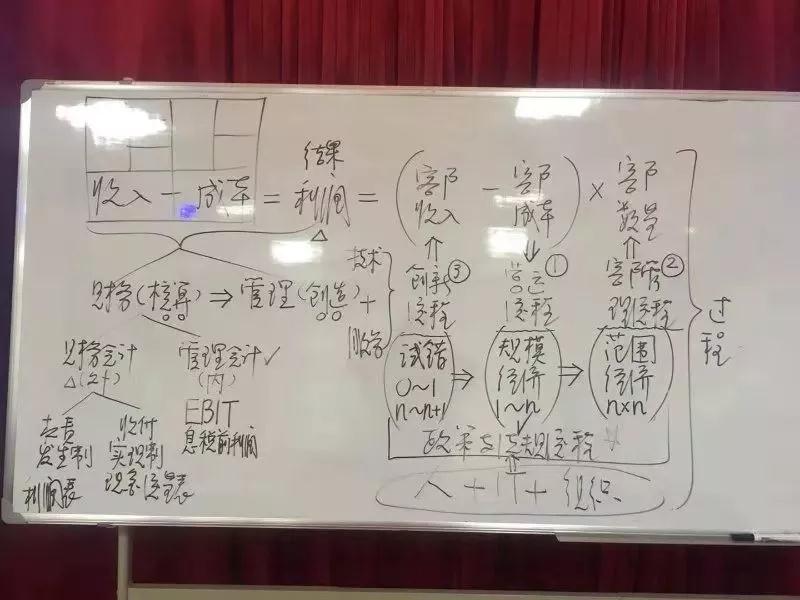 结果
收入 - 成本 = 利润 = (客户收入 - 客户成本) × 客户数量
△
财务(核算) ⇒ 管理(创造) +
技术
服务
财务会计
△(外)
管理会计✓
(内)
EBIT
息税前利润
权责
发生制
利润表
收付
实现制
现金流量表
↑ ③
创新
流程
↓ ①
营运
流程
↑ ②
客户管
理流程
试错
0~1
n~n+1
⇒
规模
经济
1~n
⇒
范围
经济
n×n
政策与法规流程
人 + IT + 组织
过程